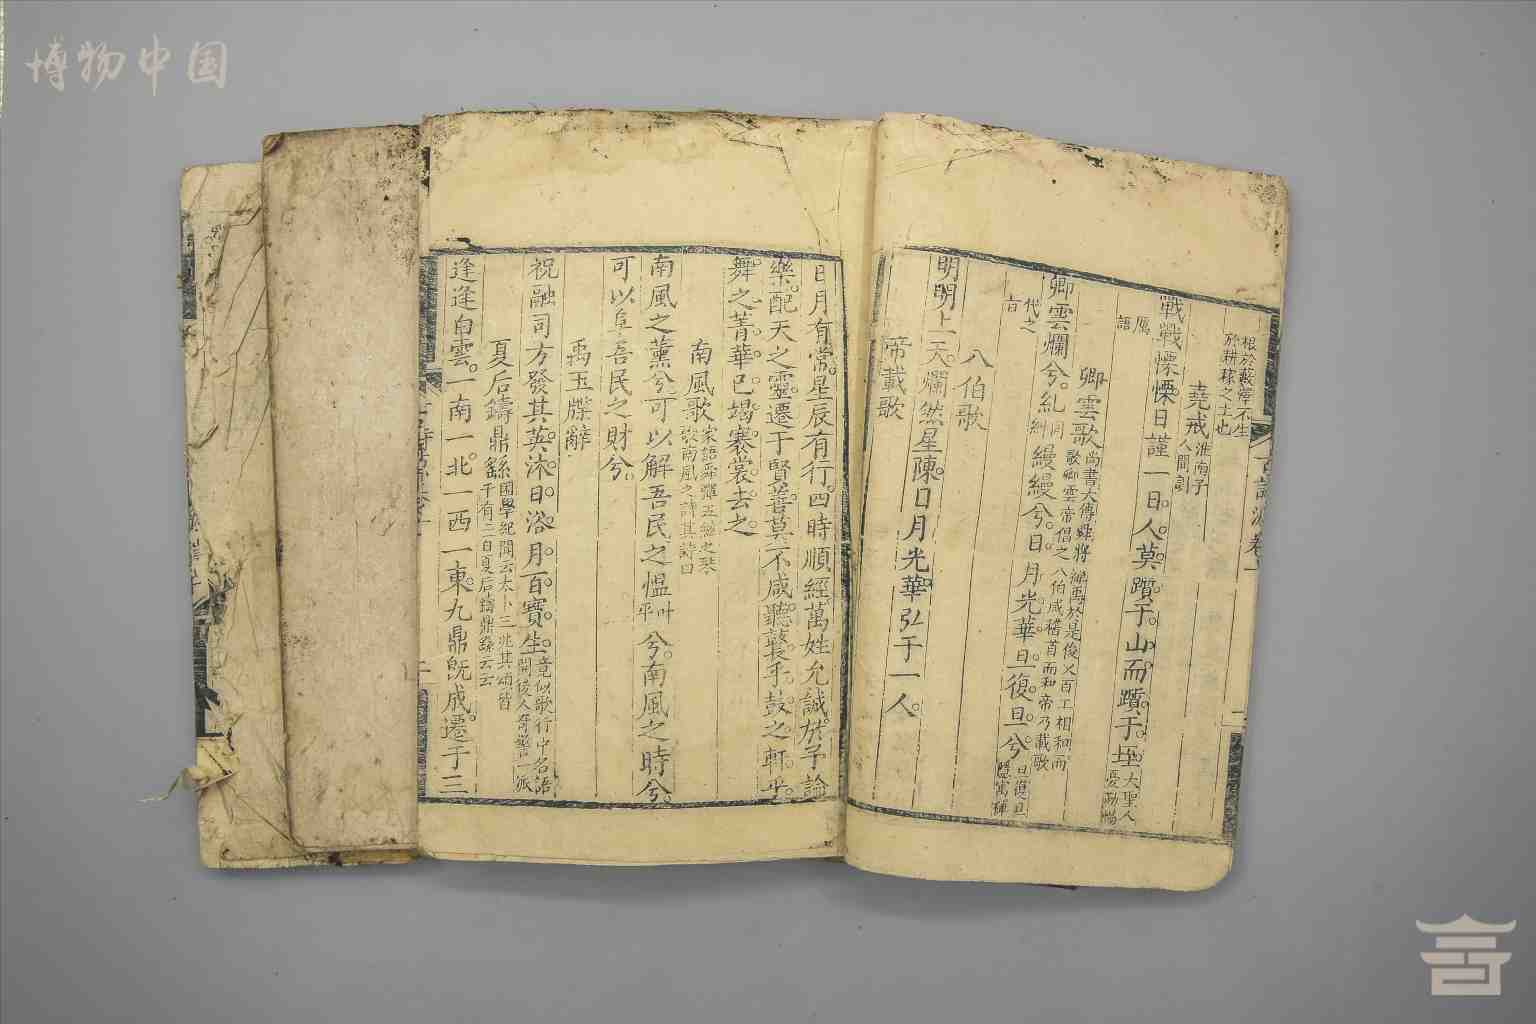 博物中国
古詩源卷一
根於藪澤不生
於耕稼之士也
堯戒 淮南子人間訓
戰戰慄慄日謹一日人莫躓于山而躓于垤 大聖人憂勤惕
厲語
卿雲歌 尚書大傳舜將禪禹於是俊乂百工相和而歌卿雲帝倡之八伯咸稽首而和帝乃載歌
卿雲爛兮糺 同糾 縵縵兮日月光華旦復旦兮 旦復旦隱寓禪
代之旨
八伯歌
明明上天爛然星陳日月光華弘于一人
帝載歌
日月有常星辰有行四時順經萬姓允誠於予論
樂配天之靈遷于賢善莫不咸聽鼚乎鼓之軒乎
舞之菁華已竭褰裳去之
南風歌 家語舜彈五絃之琴歌南風之詩其詩曰
南風之薰兮可以解吾民之慍 叶平 兮南風之時兮
可以阜吾民之財兮
禹玉牒辭
祝融司方發其英沐日浴月百寶生 竟似歌行中名語開後人奇警一派
夏后鑄鼎繇 困學紀聞云太卜三兆其頌皆千有二百夏后鑄鼎繇云云
逢逢白雲一南一北一西一東九鼎既成遷于三
古詩源卷一
二